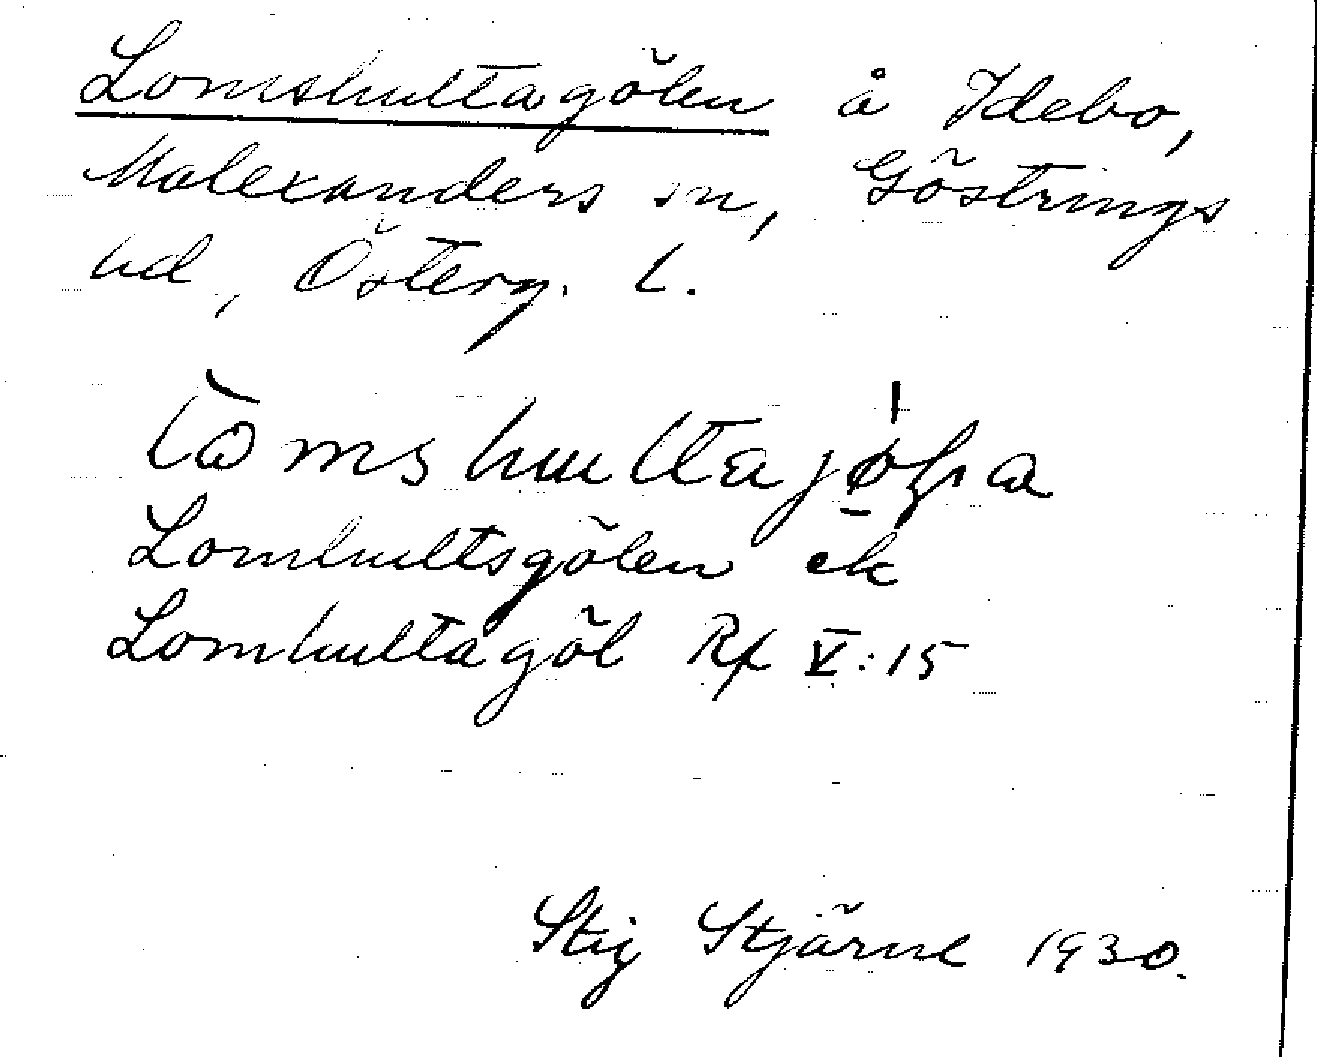 Lomshultagölen å Idebo,
Malexanders sn, Göstrings
hd, Österg. l.
Lomhultsgölen ek
Lomhultagöl Rf V:15
Stig Stjärne 1930.